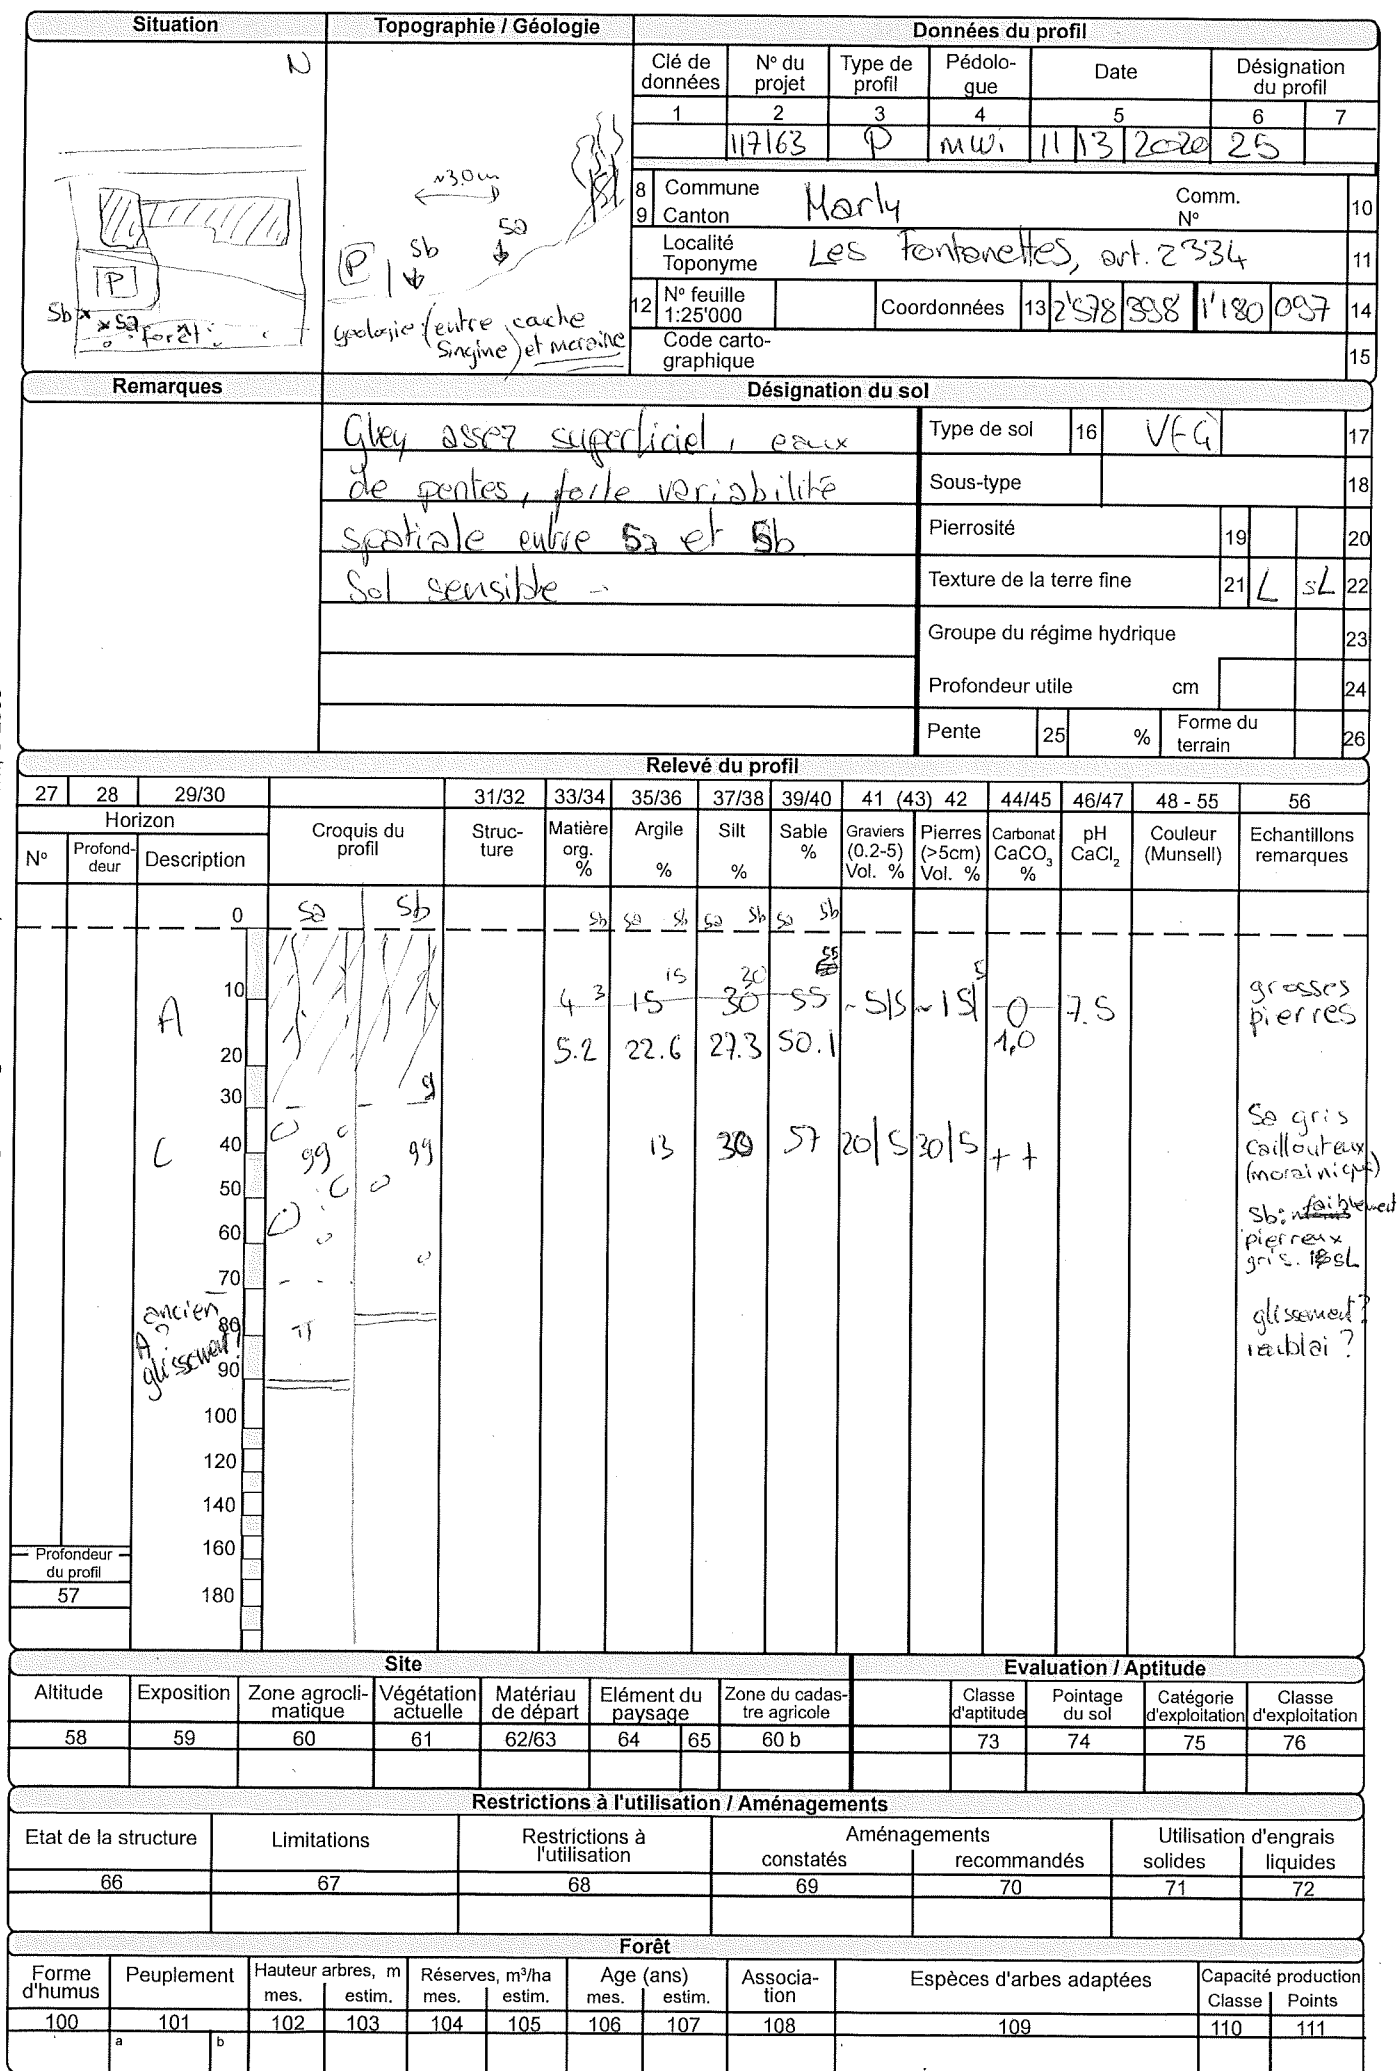 Situation
Topographie / Géologie
Données du profil
N
Clé de données
N° du projet
Type de profil
Pédolo-gue
Date
Désignation du profil
1 2 3 4 5 6 7
117163 P mwi 11 13 2020 25
8 Commune
9 Canton
Marly
Comm. N° 10
Localité Toponyme
Les Fontanettes, art. 2334
11
12 N° feuille 1:25'000
Coordonnées 13 2'578 398 1'180 097 14
Code carto-graphique 15
P
Sb
5a
Forêt
~30m
5a
5b
P
geologie: (entre cache
Singine) et moraine
Remarques
Désignation du sol
Gley assez superficiel, eaux
de pentes, forte variabilité
spatiale entre 5a et 5b
Sol sensible -
Type de sol 16 17
Sous-type 18
Pierrosité 19 20
Texture de la terre fine 21 L sL 22
Groupe du régime hydrique 23
Profondeur utile cm 24
Pente 25 % Forme du terrain 26
Relevé du profil
27 28 29/30 31/32 33/34 35/36 37/38 39/40 41 (43) 42 44/45 46/47 48 - 55 56
Horizon
N°
Profond-deur
Description
Croquis du profil
Struc-ture
Matière org. %
Argile %
Silt %
Sable %
Graviers (0.2-5) Vol. %
Pierres (>5cm) Vol. %
Carbonat CaCO3 %
pH CaCl2
Couleur (Munsell)
Echantillons remarques
0 5a 5b 5b 5a 5b 5a 5b 5a 5b
15 30 55 5
10 4 3 15 30 55 ~5/5 ~15/ 0 7.5
grosses
pierres
A
20 5.2 22.6 27.3 50.1 1,0
30 g
40 C gg gg 13 30 57 20/5 30/5 ++
5a gris
caillouteux
(morainique)
50
5b: faiblement
60
pierreux
gris. sL
70
ancien
80
A?
glissement?
90
glissement?
remblai ?
100
120
140
160
180
Profondeur du profil
57
Site
Evaluation / Aptitude
Altitude
Exposition
Zone agrocli-matique
Végétation actuelle
Matériau de départ
Elément du paysage
Zone du cadas-tre agricole
Classe d'aptitude
Pointage du sol
Catégorie d'exploitation
Classe d'exploitation
58 59 60 61 62/63 64 65 60 b 73 74 75 76
Restrictions à l'utilisation / Aménagements
Etat de la structure
Limitations
Restrictions à l'utilisation
Aménagements
constatés recommandés
Utilisation d'engrais
solides liquides
66 67 68 69 70 71 72
Forêt
Forme d'humus
Peuplement
Hauteur arbres, m
mes. estim.
Réserves, m³/ha
mes. estim.
Age (ans)
mes. estim.
Associa-tion
Espèces d'arbes adaptées
Capacité production
Classe Points
100 101 102 103 104 105 106 107 108 109 110 111
a b